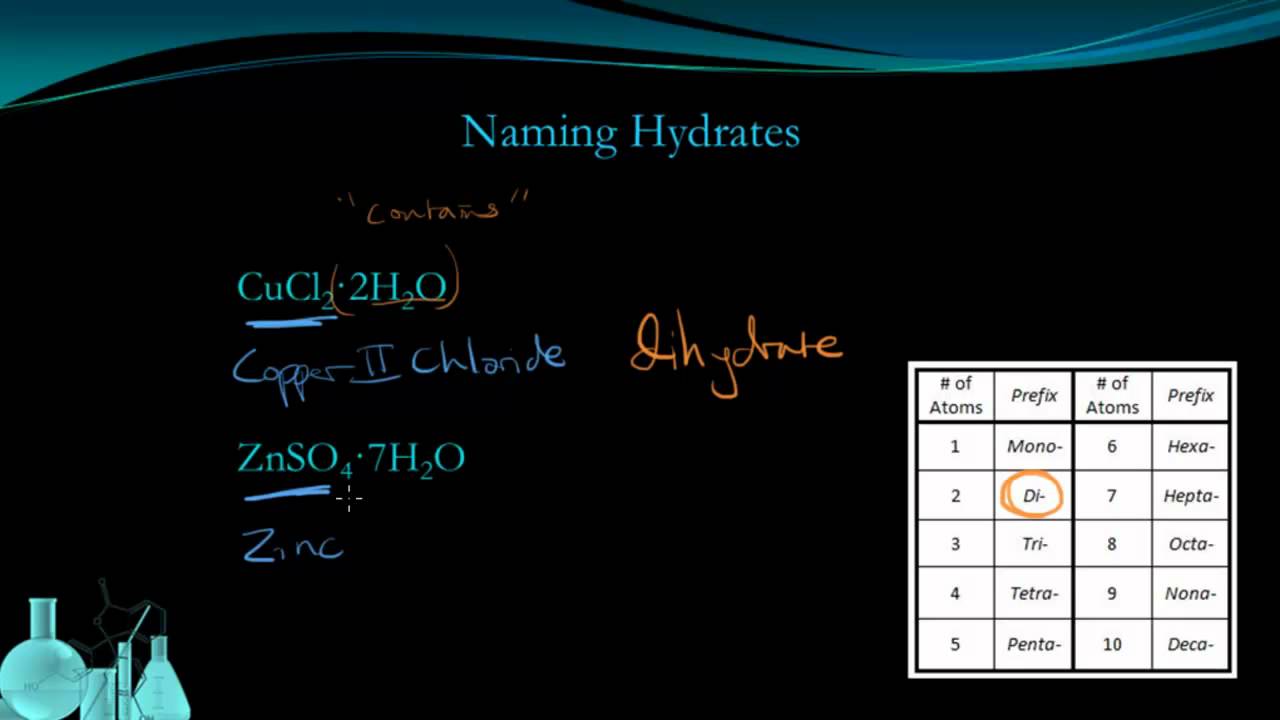 Naming Hydrates
"contains"
CuCl₂(·2H₂O)
Copper II Chloride
Dihydrate
ZnSO₄·7H₂O
Zinc
# of Atoms Prefix # of Atoms Prefix
1 Mono- 6 Hexa-
2 Di- 7 Hepta-
3 Tri- 8 Octa-
4 Tetra- 9 Nona-
5 Penta- 10 Deca-
HO
OH